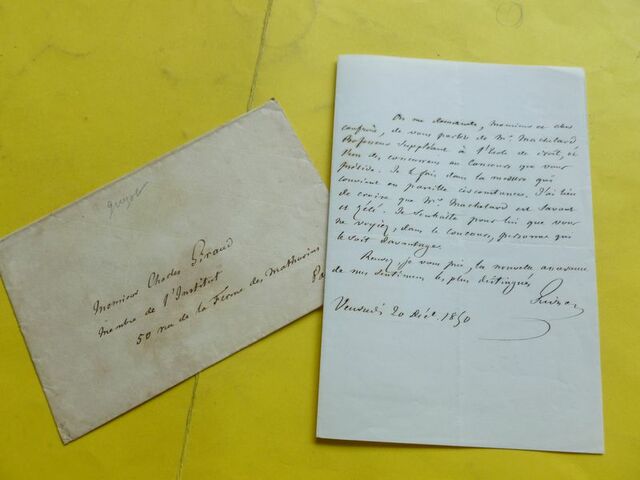 guizot
Monsieur Charles Giraud
Membre de l'Institut
50 rue de la Ferme des Mathurins
Pa
On me demande, Monsieur et cher
confrère, de vous parler de Mr. Machelard
Professeur suppléant à l'École de droit, et
l'un des concurrens au Concours que vous
présidez. Je le fais dans la mesure qui
convient en pareille circonstance. J'ai lieu
de croire que Mr. Machelard est savant
et zélé. Je souhaite pour lui que vous
ne voyiez, dans le concours, personne qui
le soit davantage.
Recevez, je vous prie, la nouvelle assurance
de mes sentimens les plus distingués
Guizot
Vendredi 20 Déc. 1850